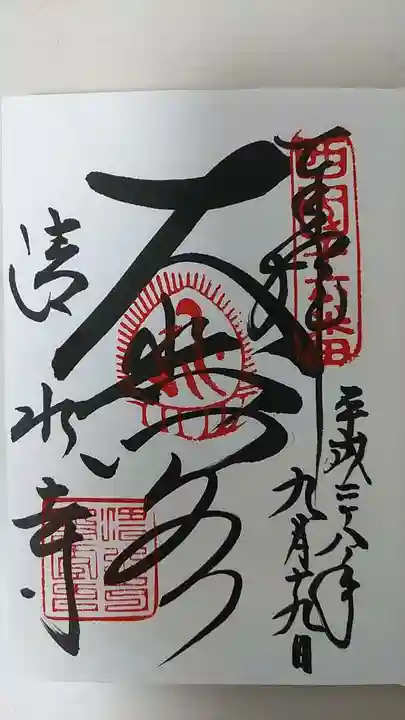 奉拝
西国十六番
平成二十八年
九月十九日
大悲閣
清水寺